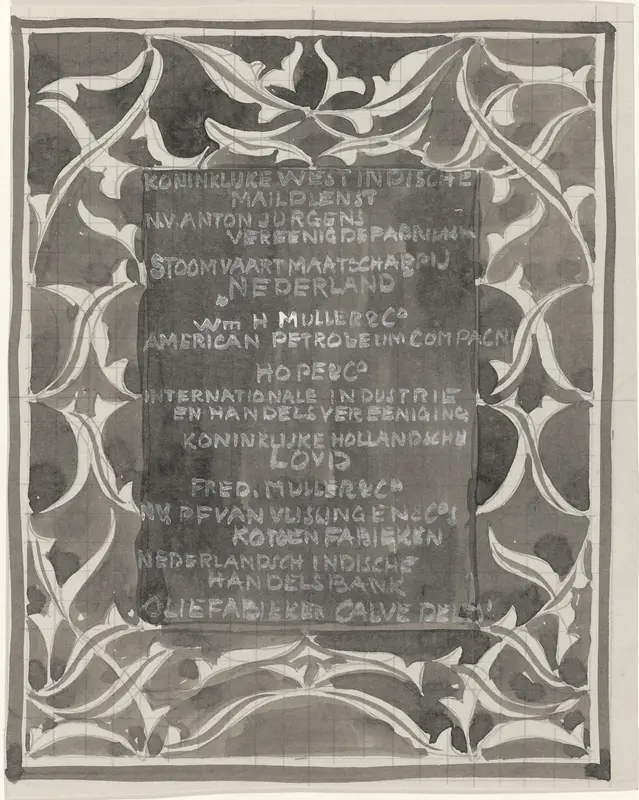 KONINKLIJKE WEST INDISCHE
MAILDIENST
N.V. ANTON JURGENS
VEREENIGDE FABRIEKEN
STOOMVAART MAATSCHAPPIJ
NEDERLAND
Wm H MULLER & Co
AMERICAN PETROLEUM COMPAGNI
HOPE & Co
INTERNATIONALE INDUSTRIE
EN HANDELSVEREENIGING
KONINKLIJKE HOLLANDSCHE
LOYD
FRED. MULLER & Co
NV. P F VAN VLISSINGEN & Co's
KATOEN FABIEKEN
NEDERLANDSCH INDISCHE
HANDELSBANK
OLIEFABIEKEN CALVE DELFT